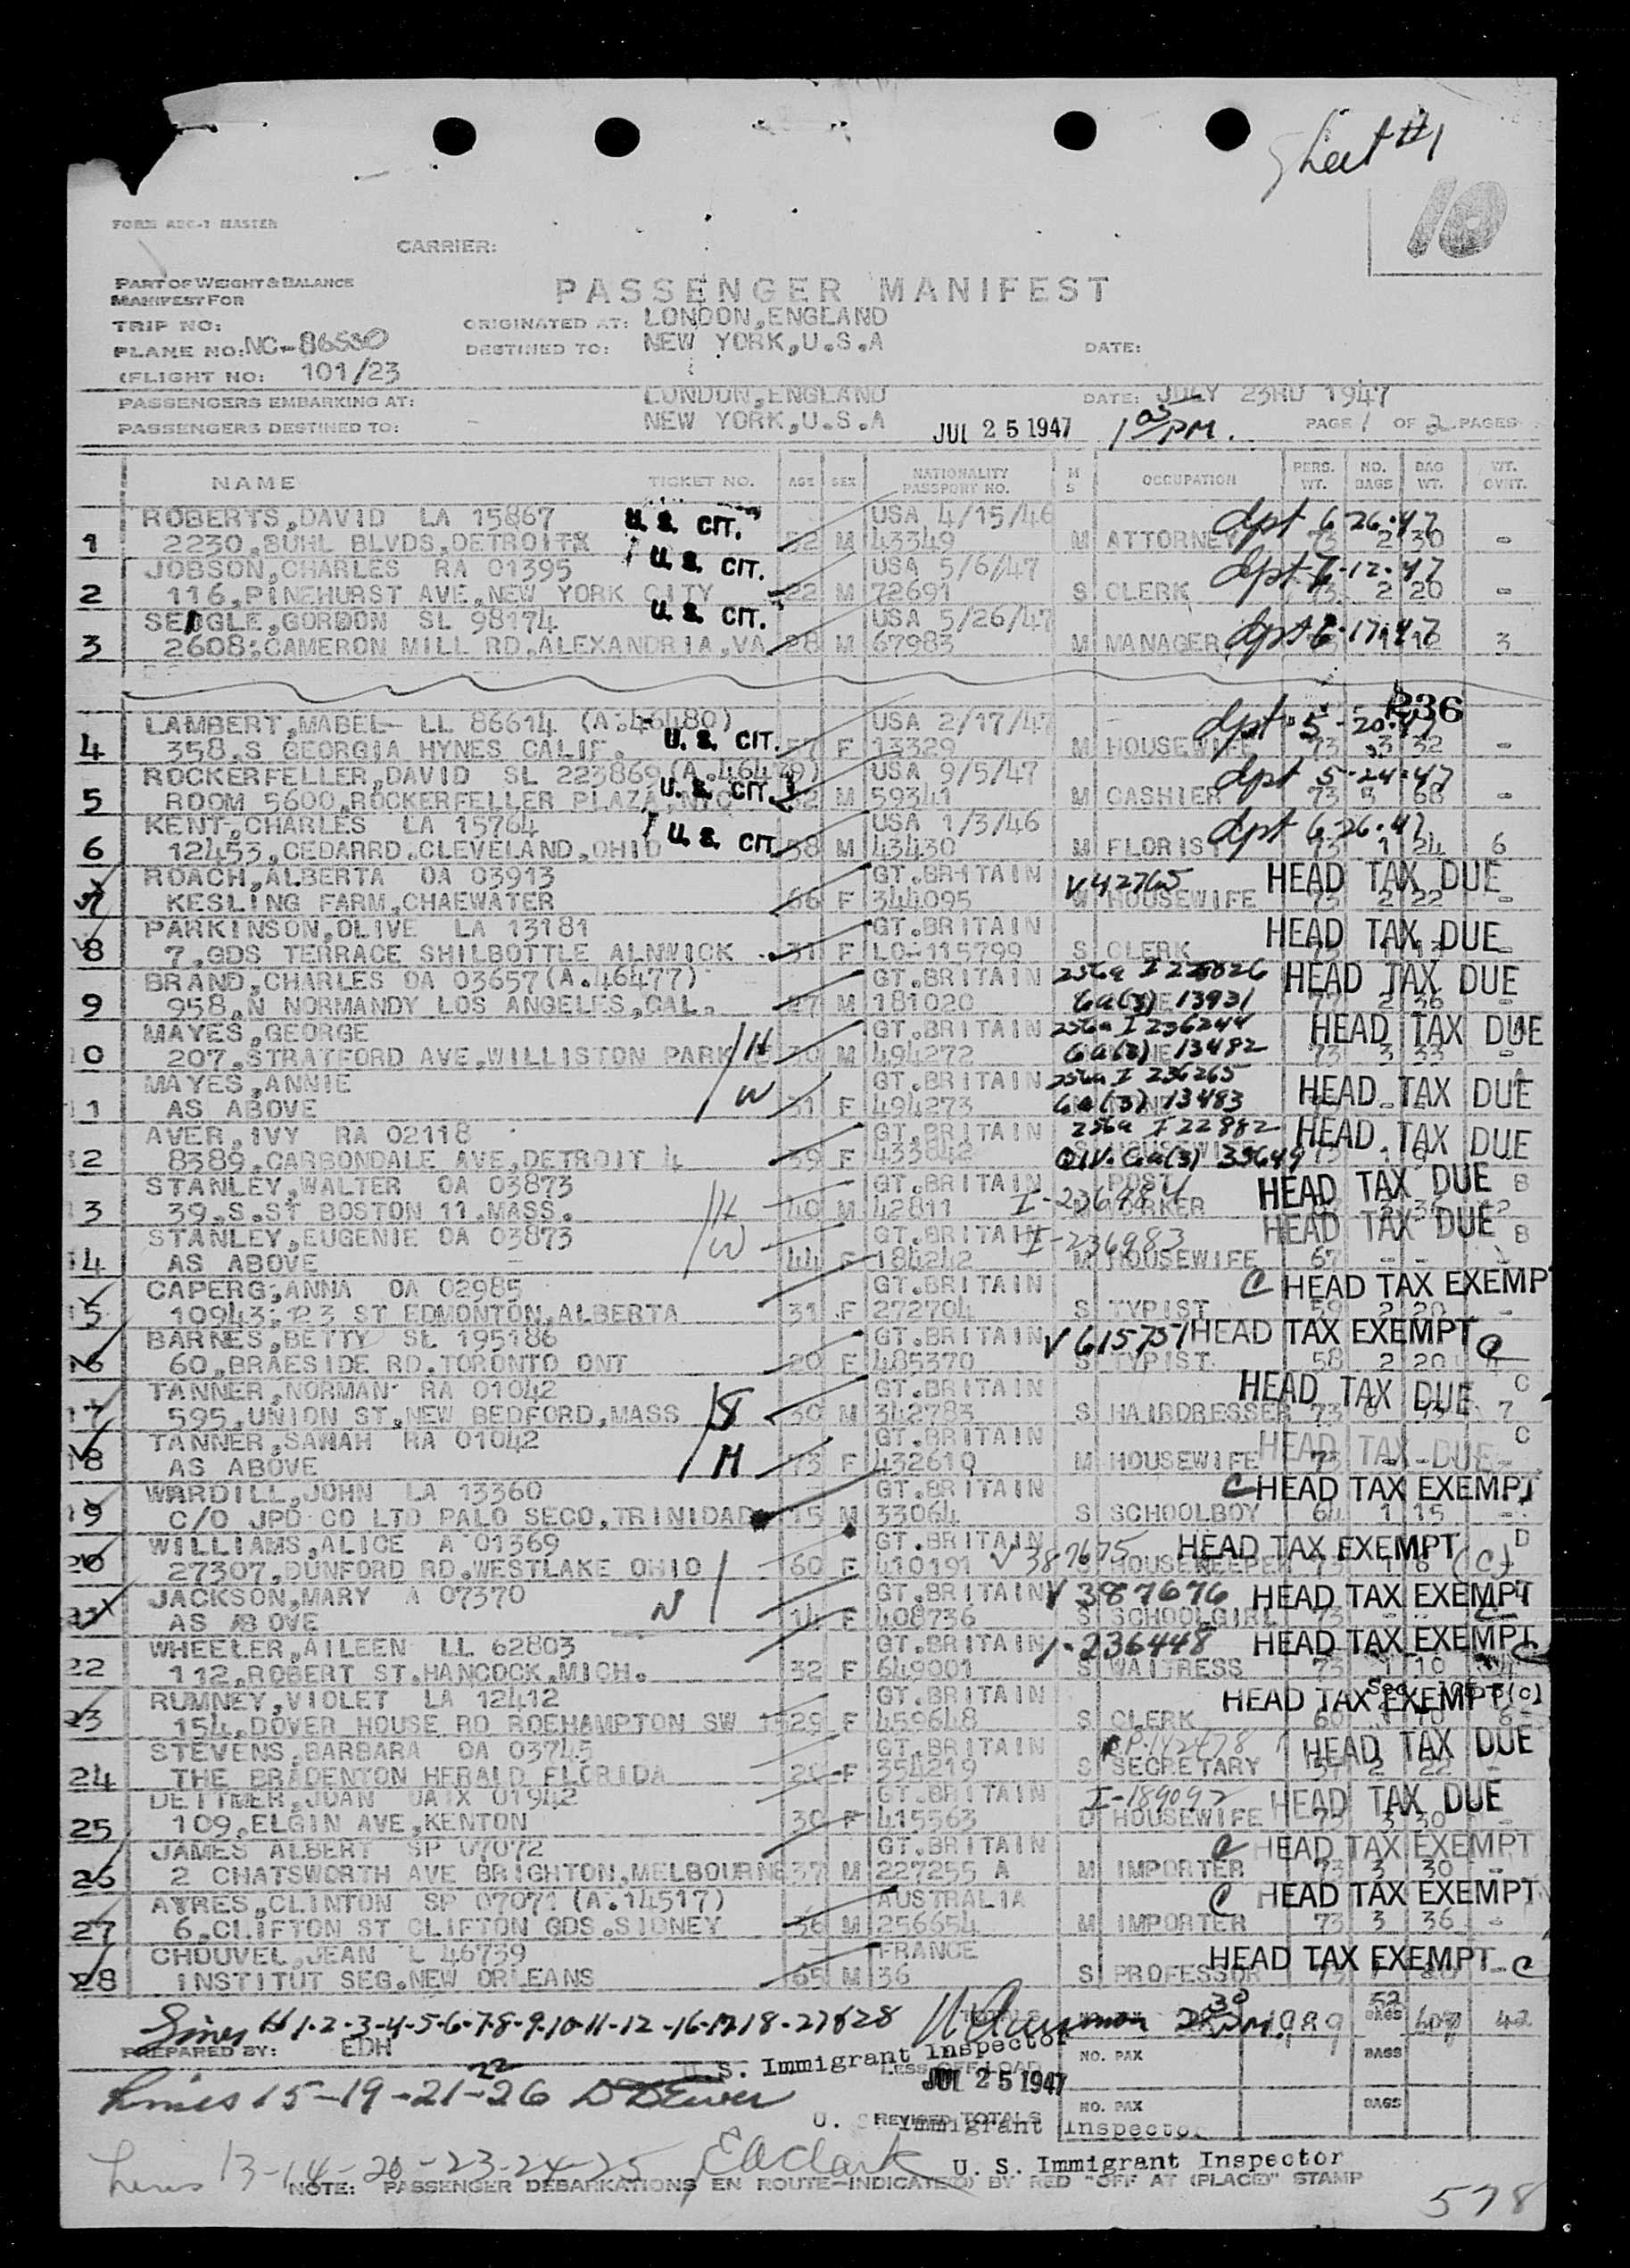 Sheet #1
10
FORM ADC-1 MASTER
CARRIER:
PART OF WEIGHT & BALANCE
MANIFEST FOR
PASSENGER MANIFEST
TRIP NO:
ORIGINATED AT: LONDON,ENGLAND
PLANE NO: NC-86530
DESTINED TO: NEW YORK,U.S.A
DATE:
(FLIGHT NO: 101/23
PASSENGERS EMBARKING AT: LONDON,ENGLAND DATE: JULY 23RD 1947
PASSENGERS DESTINED TO: NEW YORK,U.S.A JUL 25 1947 1 05 PM. PAGE 1 OF 2 PAGES
NAME TICKET NO. AGE SEX NATIONALITY PASSPORT NO. M S OCCUPATION PERS. WT. NO. BAGS BAG WT. WT. OVHT.
ROBERTS,DAVID LA 15867 U.S. CIT. USA 4/15/46 dpt 6-26-47
1 2230,BUHL BLVDS,DETROIT M 43349 M ATTORNEY 73 2 30 -
JOBSON,CHARLES RA 01395 U.S. CIT. USA 5/6/47
2 116,PINEHURST AVE,NEW YORK CITY 22 M 72691 S CLERK 73 2 20 -
GORDON SL 98174 U.S. CIT. USA 5/26/47
3 2608;CAMERON MILL RD,ALEXANDRIA,VA 28 M 67983 M MANAGER 3
236
LAMBERT,MABEL LL 86614 (A.46480) USA 2/17/47 dpt 5-20-47
4 358,S GEORGIA HYNES CALIF. U.S. CIT. 57 F 13329 M HOUSEWIFE 73 3 32 -
ROCKERFELLER,DAVID SL 223869 (A.46479) USA 9/5/47 dpt 5-24-47
5 ROOM 5600,ROCKERFELLER PLAZA,NYC U.S. CIT. M 59341 M CASHIER 73 3 68 -
KENT,CHARLES LA 15764 USA 1/3/46 dpt 6-26-47
6 12453,CEDARRD.CLEVELAND,OHIO U.S. CIT. 38 M 43430 M FLORIST 73 1 24 6
ROACH,ALBERTA OA 03913 GT.BRITAIN V42765 HEAD TAX DUE
7 KESLING FARM,CHAEWATER 66 F 344095 W HOUSEWIFE 73 2 22 -
PARKINSON,OLIVE LA 13181 GT.BRITAIN HEAD TAX DUE
8 7,GDS TERRACE SHILBOTTLE ALNWICK 31 F LO-115799 S CLERK
BRAND,CHARLES OA 03657(A.46477) GT.BRITAIN HEAD TAX DUE
9 958,N NORMANDY LOS ANGELES,CAL. 27 M 181020 6a(3) 13931
MAYES,GEORGE GT.BRITAIN 236a I 236244 HEAD TAX DUE
10 207,STRATFORD AVE,WILLISTON PARK H 30 M 494272 6a(3) 13482 73 3 33
MAYES,ANNIE GT.BRITAIN 236a I 236265 HEAD TAX DUE
11 AS ABOVE W 31 F 494273 6a(3) 13483
AVER,IVY RA 02118 GT.BRITAIN 236a I 22882 HEAD TAX DUE
12 8389,CARBONDALE AVE,DETROIT 4 39 F 433842 DIV. 6a(3) 33649
STANLEY,WALTER OA 03873 GT.BRITAIN POST I-236984 HEAD TAX DUE B
13 39,S.ST BOSTON 11.MASS. H 40 M 42811 M WORKER
STANLEY,EUGENIE OA 03873 GT.BRITAIN I-236983 HEAD TAX DUE B
14 AS ABOVE W 44 F 184242 M HOUSEWIFE 67 - -
CAPERG;ANNA OA 02985 GT.BRITAIN C HEAD TAX EXEMP
15 10943;123 ST EDMONTON,ALBERTA 31 F 272704 S TYPIST 59 2 20 -
BARNES,BETTY SL 195186 GT.BRITAIN V615751 HEAD TAX EXEMPT C
16 60,BRAESIDE RD,TORONTO ONT 20 F 485370 S TYPIST 58 2 20
TANNER,NORMAN RA 01042 GT.BRITAIN HEAD TAX DUE C
17 595,UNION ST,NEW BEDFORD,MASS S 30 M 342783 S HAIRDRESSER 73 7
TANNER,SAWAH RA 01042 GT.BRITAIN HEAD TAX DUE C
18 AS ABOVE M 73 F 432610 M HOUSEWIFE 73 - - -
WARDILL,JOHN LA 13360 GT.BRITAIN C HEAD TAX EXEMPT
19 C/O JPD CO LTD PALO SECO,TRINIDAD 15 M 33064 S SCHOOLBOY 64 1 15 -
WILLIAMS,ALICE A 01369 GT.BRITAIN V 387675 HEAD TAX EXEMPT D
20 27307,DUNFORD RD.WESTLAKE OHIO 60 F 410191 HOUSEKEEPER 73 1 8 (C)
JACKSON,MARY A 07370 N GT.BRITAIN V 387676 HEAD TAX EXEMPT
21 AS ABOVE 14 F 408736 S SCHOOLGIRL 73
WHEELER,AILEEN LL 62803 GT.BRITAIN I-236448 HEAD TAX EXEMPT C
22 112,ROBERT ST.HANCOCK,MICH. 32 F 649001 S WAITRESS 73 1 10
RUMNEY,VIOLET LA 12412 GT.BRITAIN HEAD TAX EXEMPT
23 154,DOVER HOUSE RD ROEHAMPTON SW 29 F 459648 S CLERK 60
STEVENS,BARBARA OA 03745 GT.BRITAIN HEAD TAX DUE
24 THE BRADENTON HERALD FLORIDA F 354219 S SECRETARY 2 22 -
DETTMER,JOAN OAIX 01942 GT.BRITAIN I-189092 HEAD TAX DUE
25 109,ELGIN AVE,KENTON 30 F 415563 D HOUSEWIFE 73 3 30 -
JAMES ALBERT SP 07072 GT.BRITAIN C HEAD TAX EXEMPT
26 2 CHATSWORTH AVE BRIGHTON,MELBOURNE 37 M 227255 A M IMPORTER 73 3 30 -
AYRES,CLINTON SP 07071 (A.14517) AUSTRALIA C HEAD TAX EXEMPT
27 6,CLIFTON ST CLIFTON GDS.SIDNEY 36 M 256654 M IMPORTER 73 3 36 -
CHOUVEL,JEAN L 46739 FRANCE HEAD TAX EXEMPT C
28 INSTITUT SEG.NEW ORLEANS 65 M 36 S PROFESSOR
Lines 1-2-3-4-5-6-7-8-9-10-11-12-16-17-18-27&28 TOTALS NO. PAX BAGS 42
PREPARED BY: EDH
U.S. Immigrant Inspector
LESS OFF LOAD NO. PAX BAGS
JUL 25 1947
Lines 15-19-21-22-26
REVISED TOTALS NO. PAX BAGS
U. S. Immigrant Inspector
Lines 13-14-20-23-24-25 EA Clark U. S. Immigrant Inspector
NOTE: PASSENGER DEBARKATIONS EN ROUTE-INDICATE(D) BY RED "OFF AT (PLACE)" STAMP
578